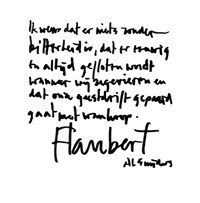 Ik wens dat er niets zonder
bitterheid is, dat er treurig
en altijd gefloten wordt
wanneer wij zegevieren en
dat onze geestdrift gepaard
gaat met wanhoop.
Flaubert